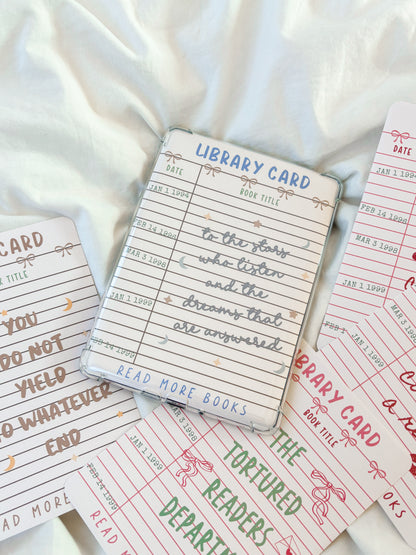 LIBRARY CARD
DATE
BOOK TITLE
JAN 1 1994
FEB 14 1996
MAR 3 1998
JAN 1 1999
FEB 14 1999
to the stars
who listen
and the
dreams that
are answered
READ MORE BOOKS
CARD
TITLE
YOU
DO NOT
YIELD
TO WHATEVER
END
READ MO
LIBRARY CARD
BOOK TITLE
JAN 1 1999
FEB 14 1999
THE
TORTURED
READERS
DEPARTM
READ M
DATE
JAN 1 1994
FEB 14 1996
MAR 3 1998
JAN 1 1999
FEB 14
OKS